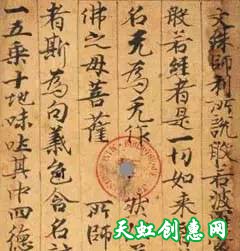 文殊師利所說般若波
般若經者是一切如来
名无為无作
佛之母菩薩 所師
者斯為句義包含名
一五乗十地味其中四德
天虹创惠网